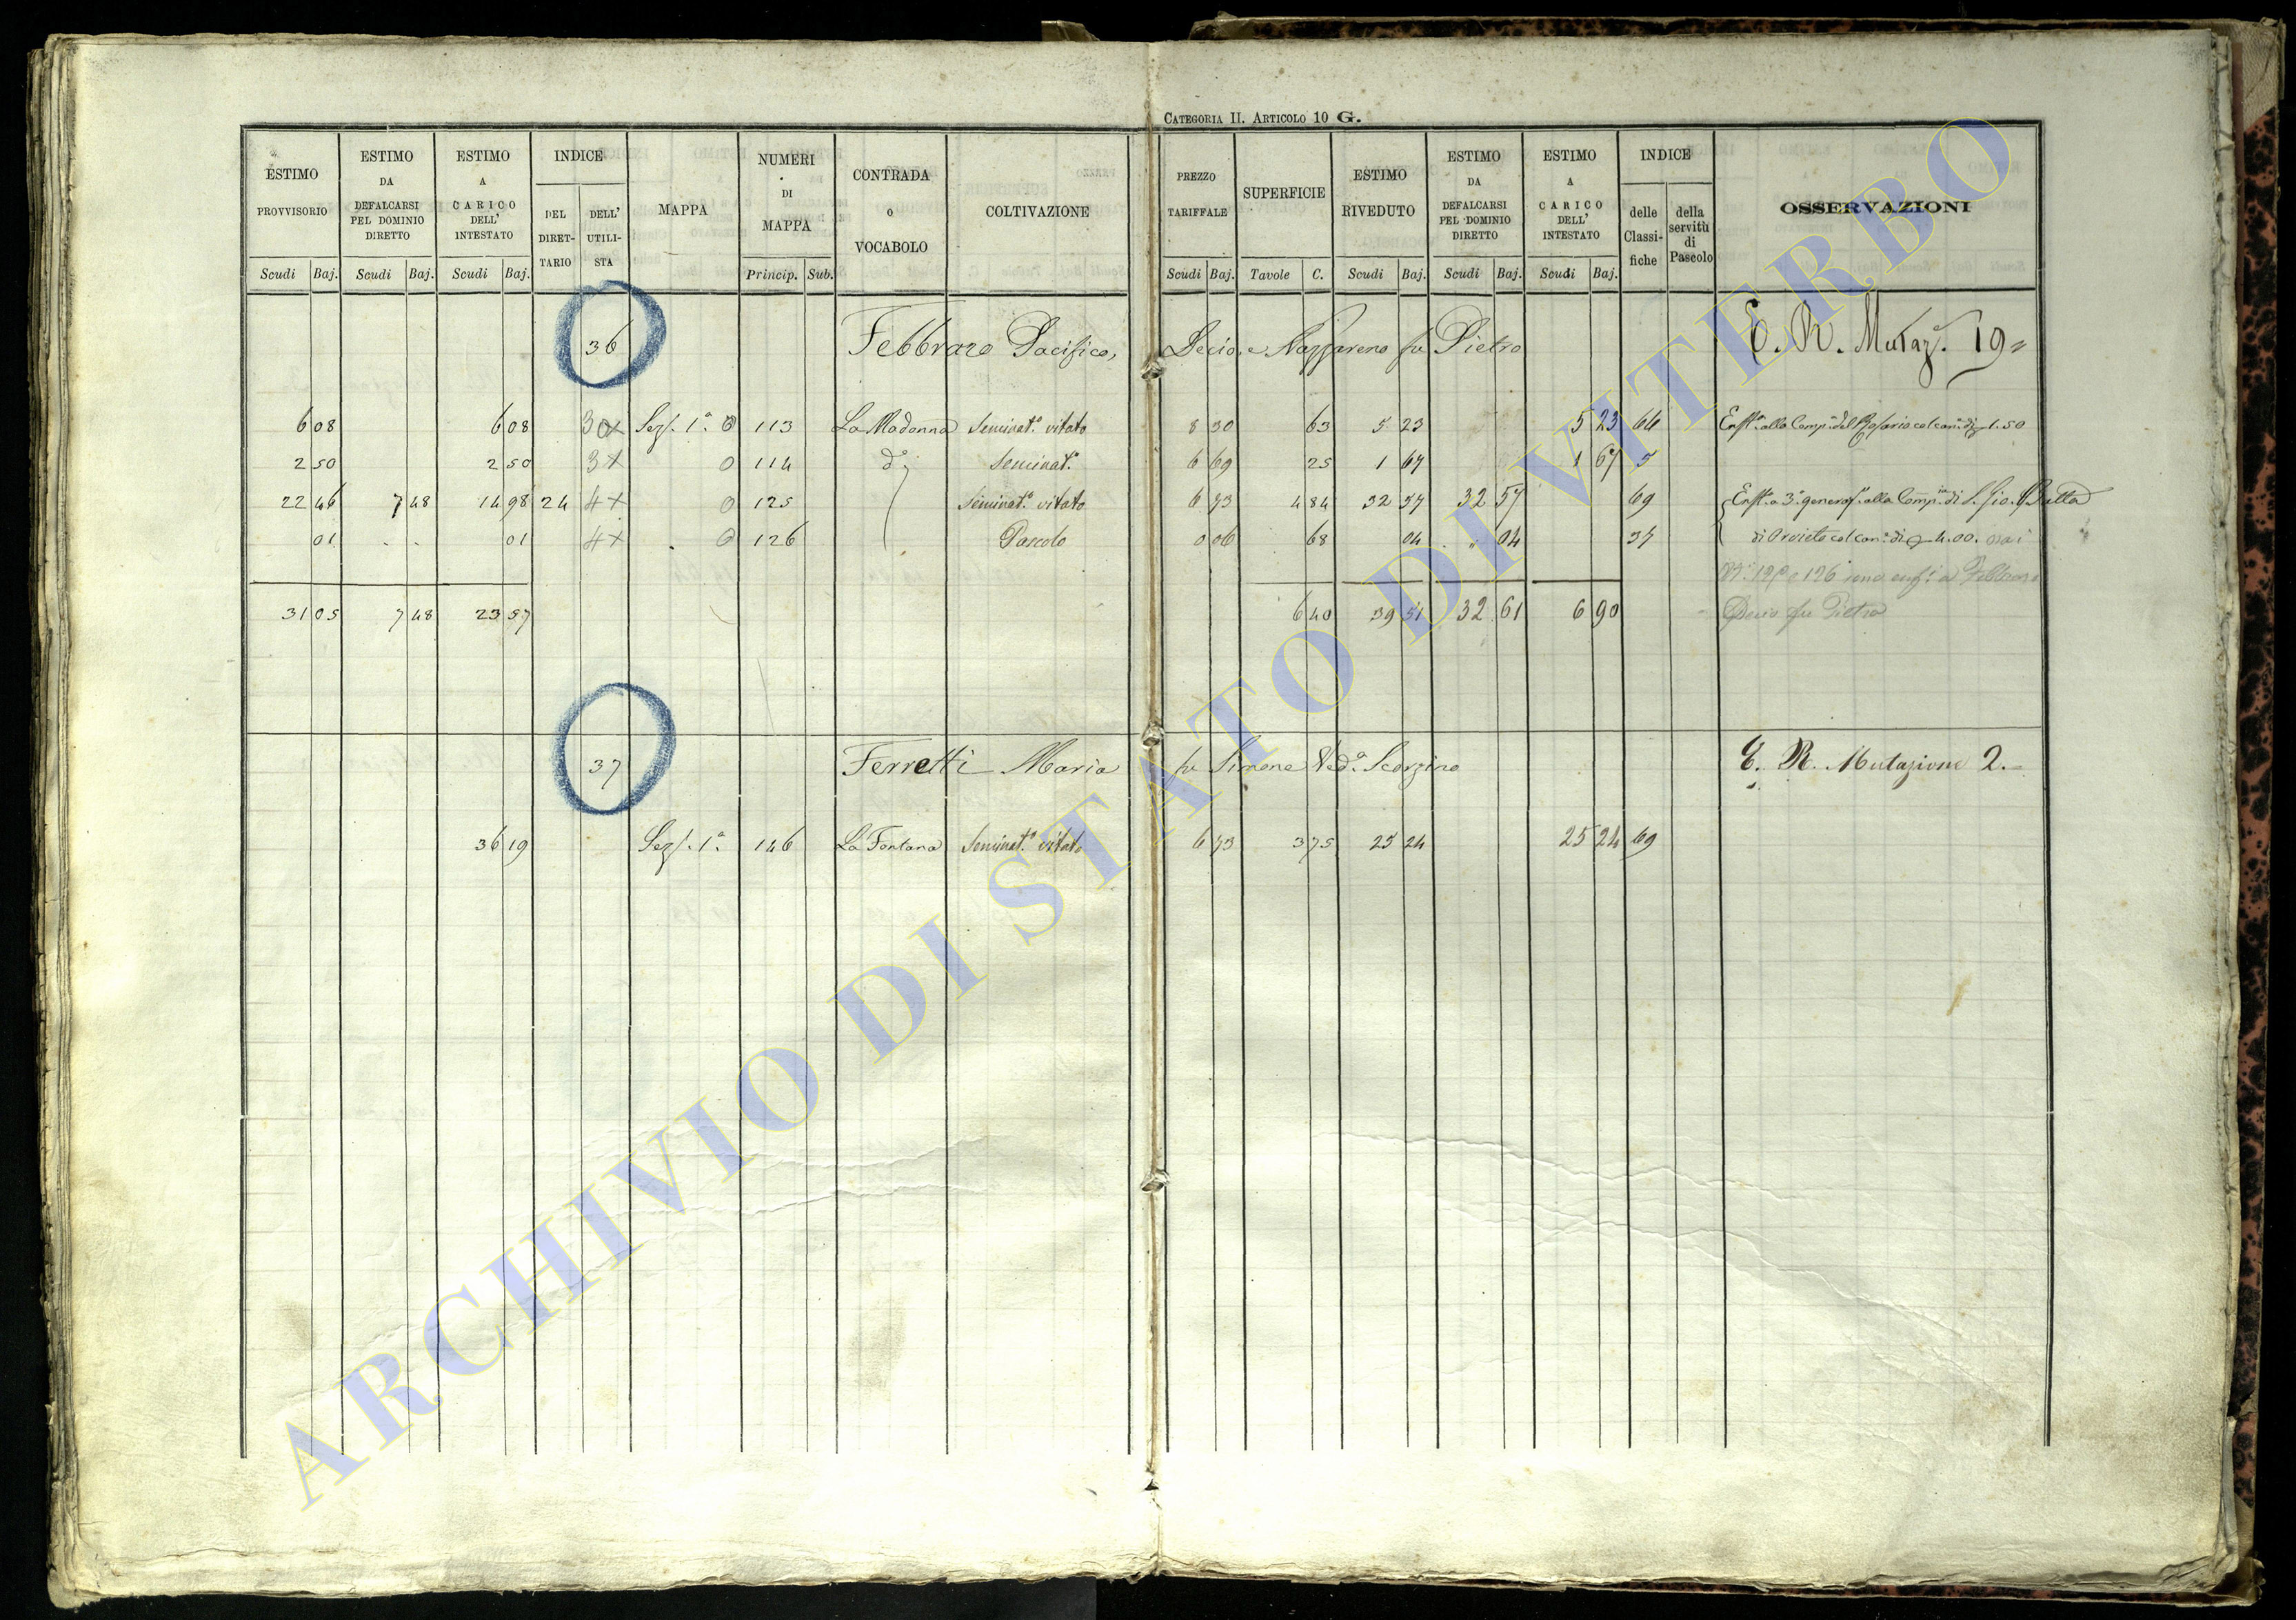 CATEGORIA II. ARTICOLO 10 G.
ESTIMO PROVVISORIO Scudi Baj. ESTIMO DA DEFALCARSI PEL DOMINIO DIRETTO Scudi Baj. ESTIMO A CARICO DELL' INTESTATO Scudi Baj. INDICE DEL DIRETTARIO DELL' UTILISTA MAPPA NUMERI DI MAPPA Princip. Sub. CONTRADA O VOCABOLO COLTIVAZIONE PREZZO TARIFFALE Scudi Baj. SUPERFICIE Tavole C. ESTIMO RIVEDUTO Scudi Baj. ESTIMO DA DEFALCARSI PEL DOMINIO DIRETTO Scudi Baj. ESTIMO A CARICO DELL' INTESTATO Scudi Baj. INDICE delle Classifiche della servitù di Pascolo OSSERVAZIONI
36 Febbraro Pacifico, Decio, e Nazzareno fu Pietro E. R. Mutaz. 19
6 08 6 08 Sez. 1ª 0 113 La Madonna Seminat.º vitato 8 30 63 5 23 5 23 64 Enf.ª alla Comp.ª del Rosario col can.e di 1.50
2 50 2 50 3 + 0 114 d.º Seminat.º 6 69 25 1 67 1 67 5
22 46 7 48 14 98 24 4 + 0 125 Seminat.º vitato 6 73 4 84 32 57 32 57 69 Enf.ª a 3ª generaz.e alla Comp.ia di S. Gio. Batta
01 . . 01 4 + . 0 126 Pascolo 0 06 68 04 . " 04 37 di Orvieto col can.e di 4.00.
N.i 125 e 126 sono enf.i a Febbraro
31 05 7 48 23 57 6 40 39 51 32 61 6 90 Decio fu Pietro
37 Ferretti Maria fu Simone Ved.ª Scorzino E. R. Mutazione 2.
36 19 Sez. 1ª 146 La Fontana Seminat.º vitato 6 73 3 75 25 24 25 24 69
ARCHIVIO DI STATO DI VITERBO